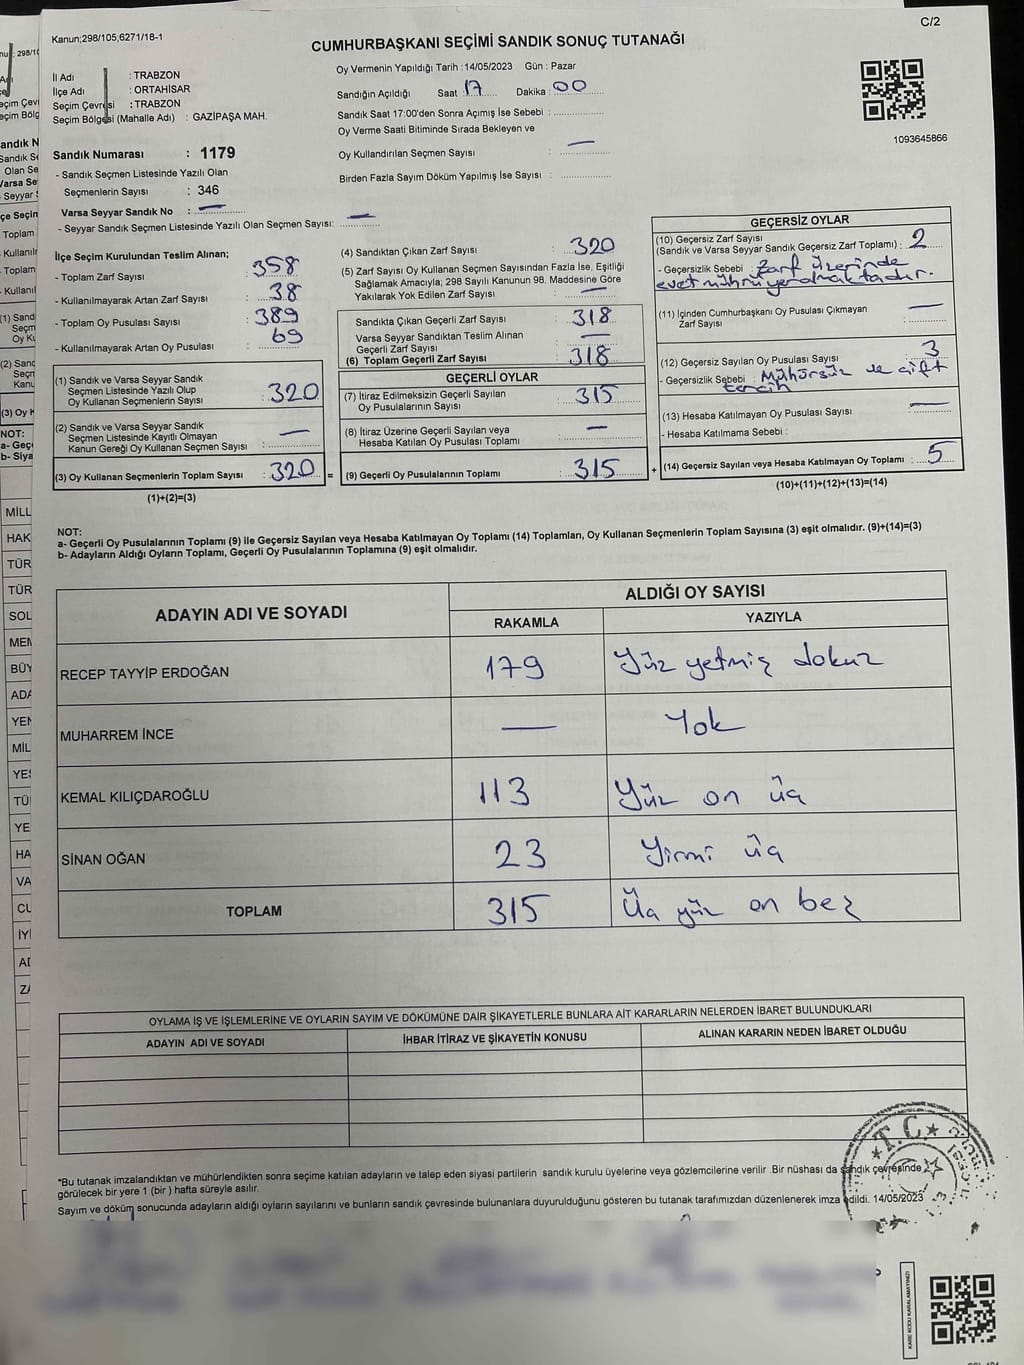 C/2
Kanun;298/105;6271/18-1
CUMHURBAŞKANI SEÇİMİ SANDIK SONUÇ TUTANAĞI
İl Adı : TRABZON
İlçe Adı : ORTAHİSAR
Seçim Çevresi : TRABZON
Seçim Bölgesi (Mahalle Adı) : GAZİPAŞA MAH.
Sandık Numarası : 1179
- Sandık Seçmen Listesinde Yazılı Olan
Seçmenlerin Sayısı : 346
Varsa Seyyar Sandık No : —
- Seyyar Sandık Seçmen Listesinde Yazılı Olan Seçmen Sayısı: —
Oy Vermenin Yapıldığı Tarih :14/05/2023 Gün : Pazar
Sandığın Açıldığı Saat : 17 Dakika : 00
Sandık Saat 17:00'den Sonra Açımış İse Sebebi :
Oy Verme Saati Bitiminde Sırada Bekleyen ve
Oy Kullandırılan Seçmen Sayısı : —
Birden Fazla Sayım Döküm Yapılmış İse Sayısı :
1093645866
İlçe Seçim Kurulundan Teslim Alınan;
- Toplam Zarf Sayısı : 358
- Kullanılmayarak Artan Zarf Sayısı : 38
- Toplam Oy Pusulası Sayısı : 389
- Kullanılmayarak Artan Oy Pusulası : 69
(1) Sandık ve Varsa Seyyar Sandık
Seçmen Listesinde Yazılı Olup
Oy Kullanan Seçmenlerin Sayısı : 320
(2) Sandık ve Varsa Seyyar Sandık
Seçmen Listesinde Kayıtlı Olmayan
Kanun Gereği Oy Kullanan Seçmen Sayısı : —
(3) Oy Kullanan Seçmenlerin Toplam Sayısı : 320 =
(1)+(2)=(3)
(4) Sandıktan Çıkan Zarf Sayısı : 320
(5) Zarf Sayısı Oy Kullanan Seçmen Sayısından Fazla İse, Eşitliği
Sağlamak Amacıyla; 298 Sayılı Kanunun 98. Maddesine Göre
Yakılarak Yok Edilen Zarf Sayısı : —
Sandıkta Çıkan Geçerli Zarf Sayısı : 318
Varsa Seyyar Sandıktan Teslim Alınan
Geçerli Zarf Sayısı : —
(6) Toplam Geçerli Zarf Sayısı : 318
GEÇERLİ OYLAR
(7) İtiraz Edilmeksizin Geçerli Sayılan
Oy Pusulalarının Sayısı : 315
(8) İtiraz Üzerine Geçerli Sayılan veya
Hesaba Katılan Oy Pusulası Toplamı : —
(9) Geçerli Oy Pusulalarının Toplamı : 315 +
GEÇERSİZ OYLAR
(10) Geçersiz Zarf Sayısı
(Sandık ve Varsa Seyyar Sandık Geçersiz Zarf Toplamı) : 2
- Geçersizlik Sebebi : Zarf üzerinde
evet mührü yer almaktadır.
(11) İçinden Cumhurbaşkanı Oy Pusulası Çıkmayan
Zarf Sayısı : —
(12) Geçersiz Sayılan Oy Pusulası Sayısı : 3
- Geçersizlik Sebebi : Mühürsüz ve çift
tercih
(13) Hesaba Katılmayan Oy Pusulası Sayısı : —
- Hesaba Katılmama Sebebi :
(14) Geçersiz Sayılan veya Hesaba Katılmayan Oy Toplamı : 5
(10)+(11)+(12)+(13)=(14)
NOT:
a- Geçerli Oy Pusulalarının Toplamı (9) ile Geçersiz Sayılan veya Hesaba Katılmayan Oy Toplamı (14) Toplamları, Oy Kullanan Seçmenlerin Toplam Sayısına (3) eşit olmalıdır. (9)+(14)=(3)
b- Adayların Aldığı Oyların Toplamı, Geçerli Oy Pusulalarının Toplamına (9) eşit olmalıdır.
ADAYIN ADI VE SOYADI
ALDIĞI OY SAYISI
RAKAMLA YAZIYLA
RECEP TAYYİP ERDOĞAN 179 Yüz yetmiş dokuz
MUHARREM İNCE — Yok
KEMAL KILIÇDAROĞLU 113 Yüz on üç
SİNAN OĞAN 23 Yirmi üç
TOPLAM 315 Üç yüz on beş
OYLAMA İŞ VE İŞLEMLERİNE VE OYLARIN SAYIM VE DÖKÜMÜNE DAİR ŞİKAYETLERLE BUNLARA AİT KARARLARIN NELERDEN İBARET BULUNDUKLARI
ADAYIN ADI VE SOYADI İHBAR İTİRAZ VE ŞİKAYETİN KONUSU ALINAN KARARIN NEDEN İBARET OLDUĞU
*Bu tutanak imzalandıktan ve mühürlendikten sonra seçime katılan adayların ve talep eden siyasi partilerin sandık kurulu üyelerine veya gözlemcilerine verilir .Bir nüshası da sandık çevresinde
görülecek bir yere 1 (bir ) hafta süreyle asılır.
Sayım ve döküm sonucunda adayların aldığı oyların sayılarını ve bunların sandık çevresinde bulunanlara duyurulduğunu gösteren bu tutanak tarafımızdan düzenlenerek imza edildi. 14/05/2023
T.C.
KARE KODU KARALAMAYINIZ!